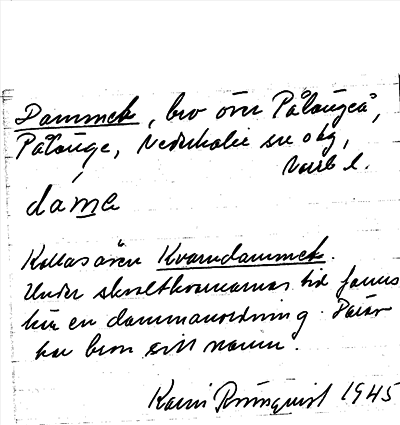 Dammek, bro över Pålängeå,
Pålänge, Nederkalix sn o kg,
Norrb l.
dame
Kallas även Kvarndammek.
Under skvaltkvarnarnas tid fanns
här en dammanordning. Därav
har bron sitt namn.
Karin Rönnquist 1945